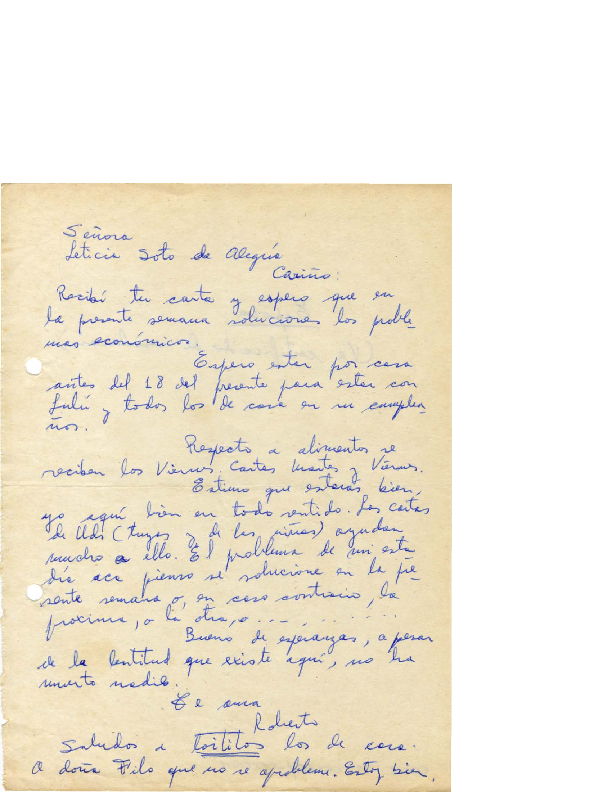 Señora
Leticia Soto de Alegría
Cariño:
Recibí tu carta y espero que en
la presente semana soluciones los proble-
mas económicos.
Espero estar por casa
antes del 18 del presente para estar con
Lulú y todos los de casa en su cumplea-
ños.
Respecto a alimentos se
reciben los Viernes. Cartas Martes y Viernes.
Estimo que estarás bien,
yo aquí bien en todo sentido. Las cartas
de Uds (tuyas y de las niñas) ayudan
mucho a ello. El problema de mi esta
día acá pienso se solucione en la pre-
sente semana o, en caso contrario, la
proxima, o la otra, o ..........
Bueno de esperanzas, a pesar
de la lentitud que existe aquí, no ha
muerto nadie.
Te ama
Roberto
Saludos a toititos los de casa.
A doña Filo que no se aprobleme. Estoy bien.